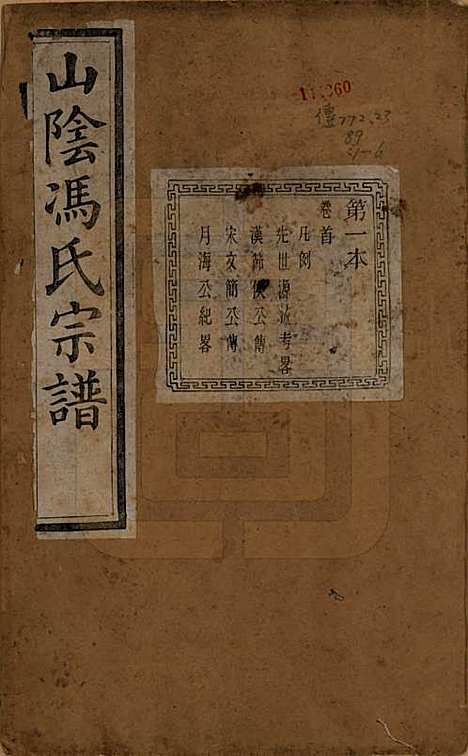 山陰馮氏宗譜
第一本
卷首
凡例
先世源流考畧
漢節侯公傳
宋文簡公傳
月海公紀畧
772.23
89